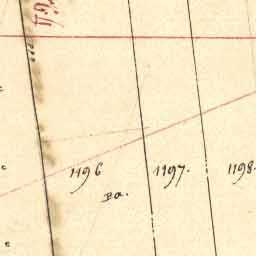 1196
1197.
1198.
Ba.